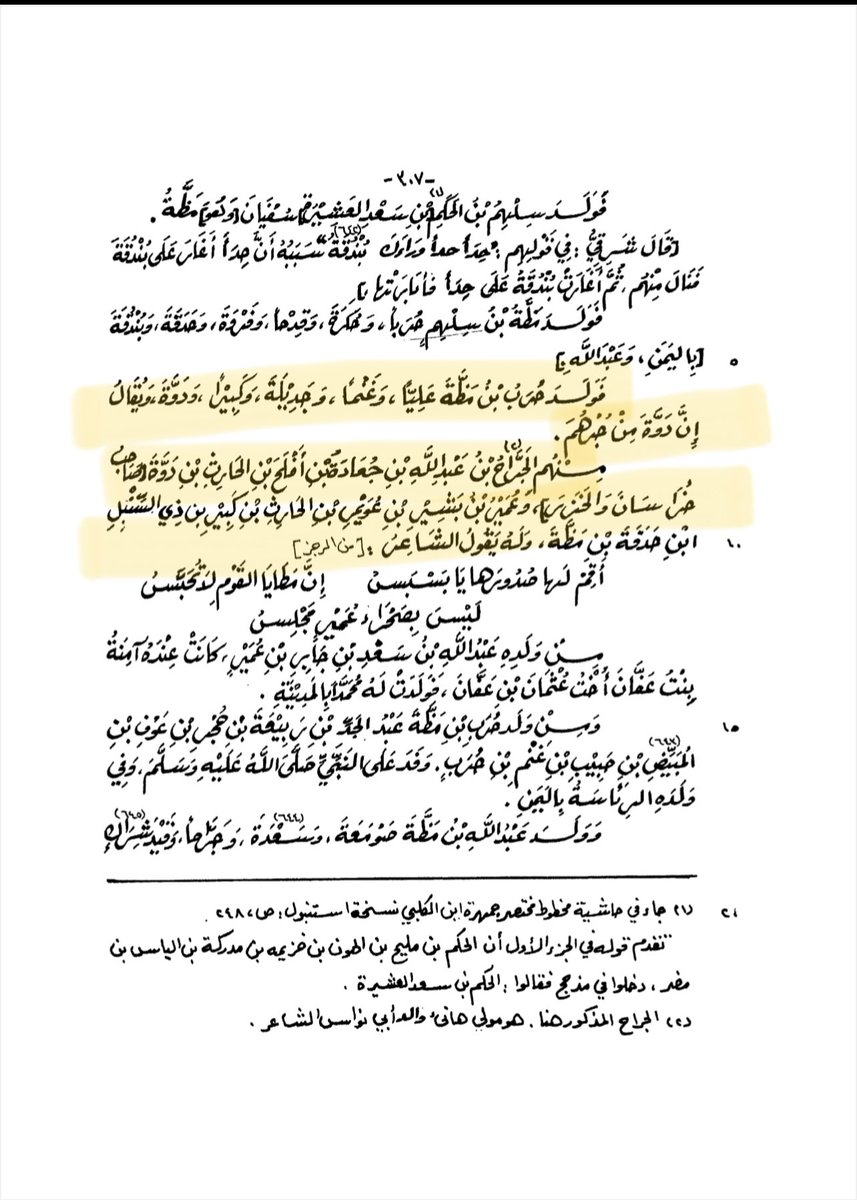 -٣٠٧-
فَوَلَدَ سِلْهِمُ بْنُ الحَكَمِ (١) بْنِ سَعْدِ العَشِيْرَةِ [سُفْيَانَ] وَهُوَ مَظَّةُ .
[قَالَ شَرْقِيُّ : فِي قَوْلِهِم : حِدَأَ حِدَأَ وَرَاءَكِ بُنْدُقَةُ (٦٤٢) سَبَبُهُ أَنَّ حِدَأَ أَغَارَ عَلَى بُنْدُقَةَ
فَنَالَ مِنْهُم ، ثُمَّ أَغَارَتْ بُنْدُقَةُ عَلَى حِدَأَ فَأَبَادَتْهَا]
فَوَلَدَ مَظَّةُ بْنُ سِلْهِمٍ حُرَباً ، وَ ، وَقِدْحاً ، وَفَرْوَةَ ، وَحَدَقَةَ ، وَبُنْدُقَةَ
٥ [بِاليَمَنِ ، وَعَبْدَاللَّهِ]
فَوَلَدَ حُرَبُ بْنُ مَظَّةَ عَلِيًّا ، وَغَنْماً ، وَجَدِيْلَةَ ، وَكَبِيْراً ، وَدَوَّةَ ، وَيُقَالُ
إِنَّ دَوَّةَ مِنْ جُرْهُمَ .
مِنْهُم الجَرَّاحُ (٢) بْنُ عَبْدِاللَّهِ بْنِ جُعَادَةَ بْنِ أَفْلَحَ بْنِ الحَارِثِ بْنِ دَوَّةَ [صَاحِبُ
خُرَاسَانَ وَالخَزَرِ] ، وَعُمَيْرُ بْنُ بَشِيْرِ بْنِ عُوَيْمِرِ بْنِ الحَارِثِ بْنِ كَبِيْرِ بْنِ ذِي السُّنْبُلِ
١٠ ابْنِ حَدَقَةَ بْنِ مَظَّةَ ، وَلَهُ يَقُولُ الشَّاعِرُ : [من الرجز]
أَقِمْ لَهَا صُدُورَهَا يَا بَسْبَسُ إِنَّ مَطَايَا القَوْمِ لَا تُحَبَّسُ
لَيْسَ بِصَحْرَاءِ عُمَيْرٍ مَجْلِسُ
مِنْ وَلَدِهِ عَبْدُاللَّهِ بْنُ سَعْدِ بْنِ جَابِرِ بْنِ عُمَيْرٍ ، كَانَتْ عِنْدَهُ آمِنَةُ
بِنْتُ عَفَّانَ أُخْتُ عُثْمَانَ بْنِ عَفَّانَ ، فَوَلَدَتْ لَهُ مُحَمَّدًا بِالمَدِيْنَةِ .
١٥ وَمِنْ وَلَدِ حُرَبِ بْنِ مَظَّةَ عَبْدُ الجَدِّ بْنِ رَبِيْعَةَ بْنِ حُجْرِ بْنِ عَوْفِ بْنِ
المُبَيِّضِ (٦٤٣) بْنِ حَبِيْبِ بْنِ غَنْمِ بْنِ حُرَبٍ . وَفَدَ عَلَى النَّبِيِّ صَلَّى اللَّهُ عَلَيْهِ وَسَلَّمَ ، وَفِي
وَلَدِهِ الرِّئَاسَةُ بِاليَمَنِ .
وَوَلَدَ عَبْدُاللَّهِ بْنُ مَظَّةَ صَوْمَعَةَ ، وَسَعْدَةَ (٦٤٤) ، وَجَرَاحاً ، وَقَيْدَ شِرَاكٍ (٦٤٥)
٢١ (١) جاء في حاشية مخطوط مختصر جمهرة ابن الكلبي نسخة استنبول : ص ، ٢٤٨ .
تقدم قوله في الجزء الأول أن الحكم بن مليح بن الهون بن خزيمه بن مدركة بن الياس بن
مضر ، دخلوا في مذحج فقالوا : الحكم بن سعد العشيرة .
(٢) الجراح المذكور هنا . هو مولى هانئ والد أبي نواس الشاعر .